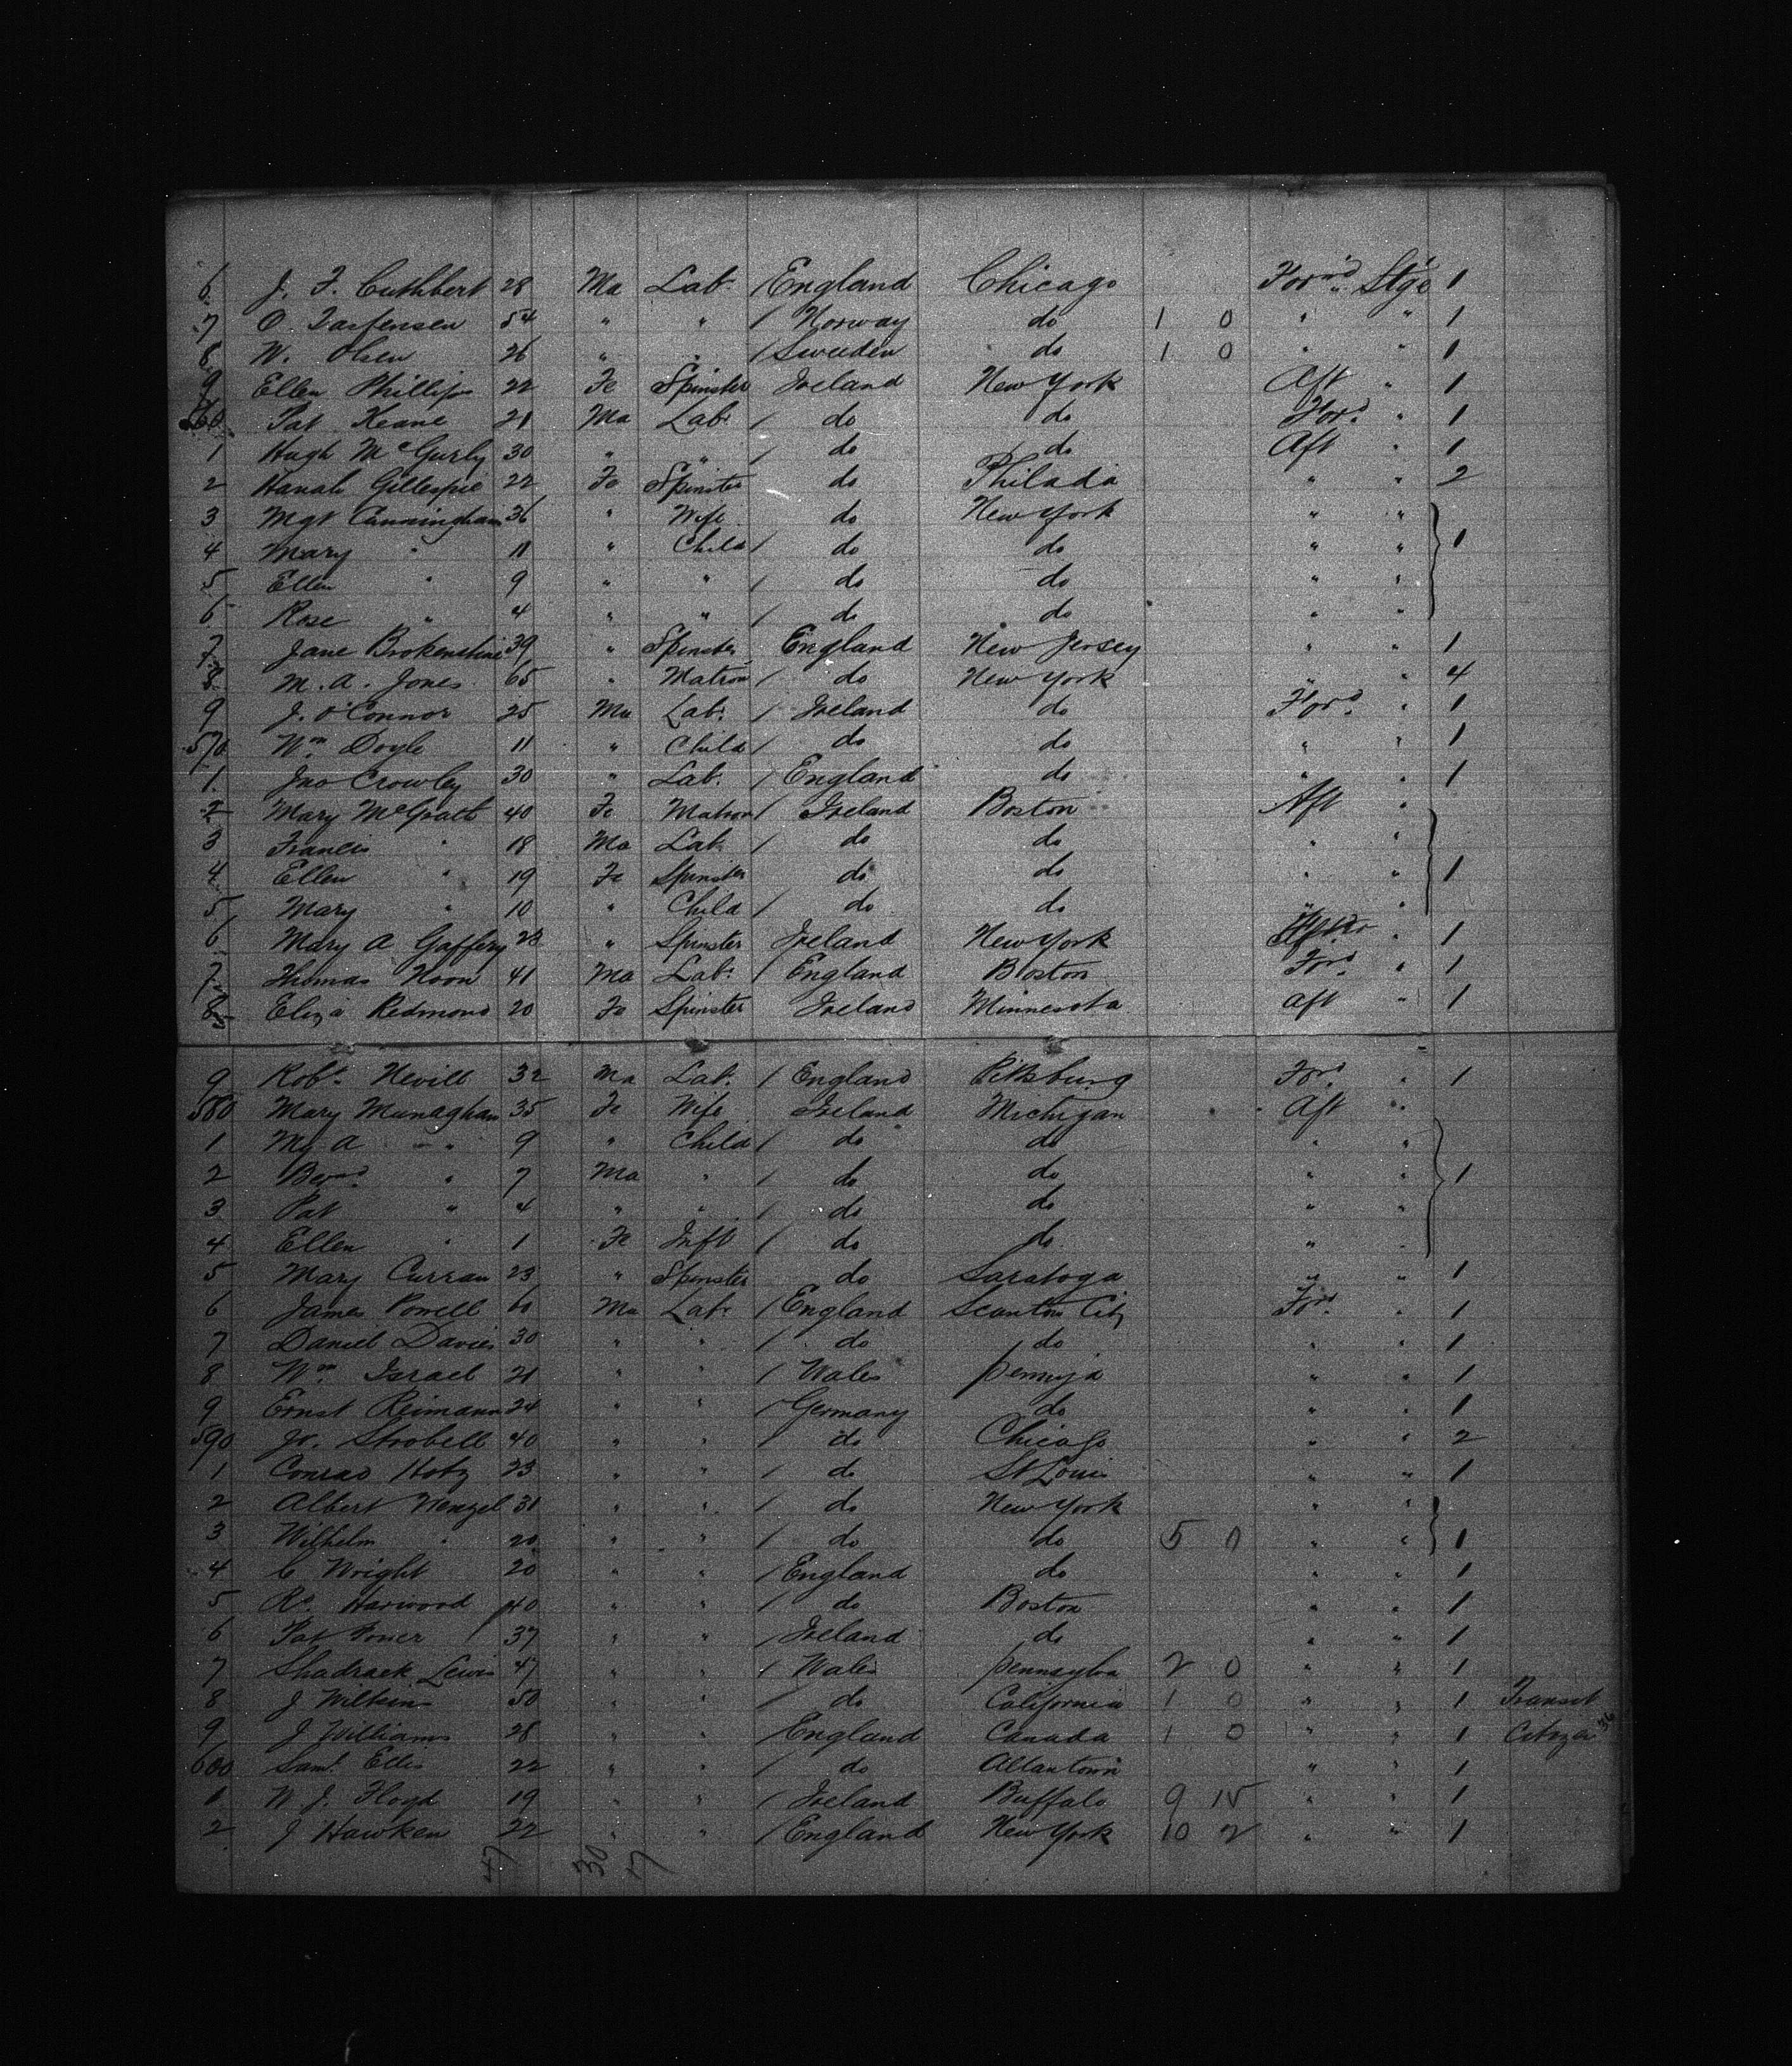 6 J. F. Cuthbert 28 Ma Lab. / England Chicago For'd Stge 1
7 O. 54 " " / Norway do 1 0 " " 1
8 W. Olsen 26 " " / Sweeden do 1 0 " " 1
9 Ellen Phillips 22 Fe Spinster Ireland New York Aft " 1
560 Pat Keane 21 Ma Lab. / do do For'd " 1
1 Hugh McGurly 30 " " / do do Aft " 1
2 Hanah Gillespie 22 Fe Spinster do Philada " " 2
3 Mgt Cunningham 36 " Wife do New York " "
4 Mary " 11 " Child / do do " " 1
5 Ellen " 9 " " / do do " "
6 Rose " 4 " " / do do " "
7 Jane Brokenshine 39 " Spinster England New Jersey " " 1
8 M. A. Jones 65 " Matron / do New York " " 4
9 J. O'Connor 25 Ma Lab. / Ireland do For'd " 1
570 Wm Doyle 11 " Child / do do " " 1
1 Jno Crowley 30 " Lab. / England do " " 1
2 Mary McGrath 40 Fe Matron / Ireland Boston Aft "
3 Francis " 18 Ma Lab / do do " "
4 Ellen " 19 Fe Spinster do do " " 1
5 Mary " 10 " Child / do do " "
6 Mary A Gaffery 28 " Spinster Ireland New York " 1
7 Thomas Noon 41 Ma Lab. / England Boston For'd " 1
8 Eliza Redmond 20 Fe Spinster Ireland Minnesota aft " 1
9 Robt. Nevill 32 Ma Lab. / England Pittsburg For'd " 1
580 Mary Managhan 35 Fe Wife Ireland Michigan Aft "
1 My A " 9 " Child / do do " "
2 Bernd. " 7 Ma " / do do " " 1
3 Pat " 4 " " / do do " "
4 Ellen " 1 Fe Inft / do do "
5 Mary Curran 23 " Spinster do Saratoga " " 1
6 James Powell 60 Ma Lab. / England Scanton City For'd " 1
7 Daniel Davies 30 " " / do do " " 1
8 Wm Israel 21 " " / Wales " " 1
9 Ernst Reimann 24 " " / Germany do " " 1
590 Jr. Strobell 40 " " / do Chicago " " 2
1 Conrad Hotz 23 " " / do St Louis " " 1
2 Albert Wenzel 31 " " / do New York " "
3 Wilhelm " 20 " " / do do 5 0 " " 1
4 C Wright 20 " " / England do " " 1
5 Rd. Harwood 40 " " / do Boston " " 1
6 Pat Power 37 " " / Ireland do " " 1
7 Shadrack Lewis 47 " " / Wales Pennsylva 2 0 " " 1
8 J Wilkins 50 " " / do California 1 0 " " 1 Transit
9 J Williams 28 " " / England Canada 1 0 " " 1 Citizen 36
600 Saml. Ellis 22 " " / do Allantown " " 1
1 W. J. Floyd 19 " " / Ireland Buffalo 9 15 " " 1
2 J Hawken 22 " " / England New York 10 2 " " 1
47 30 17